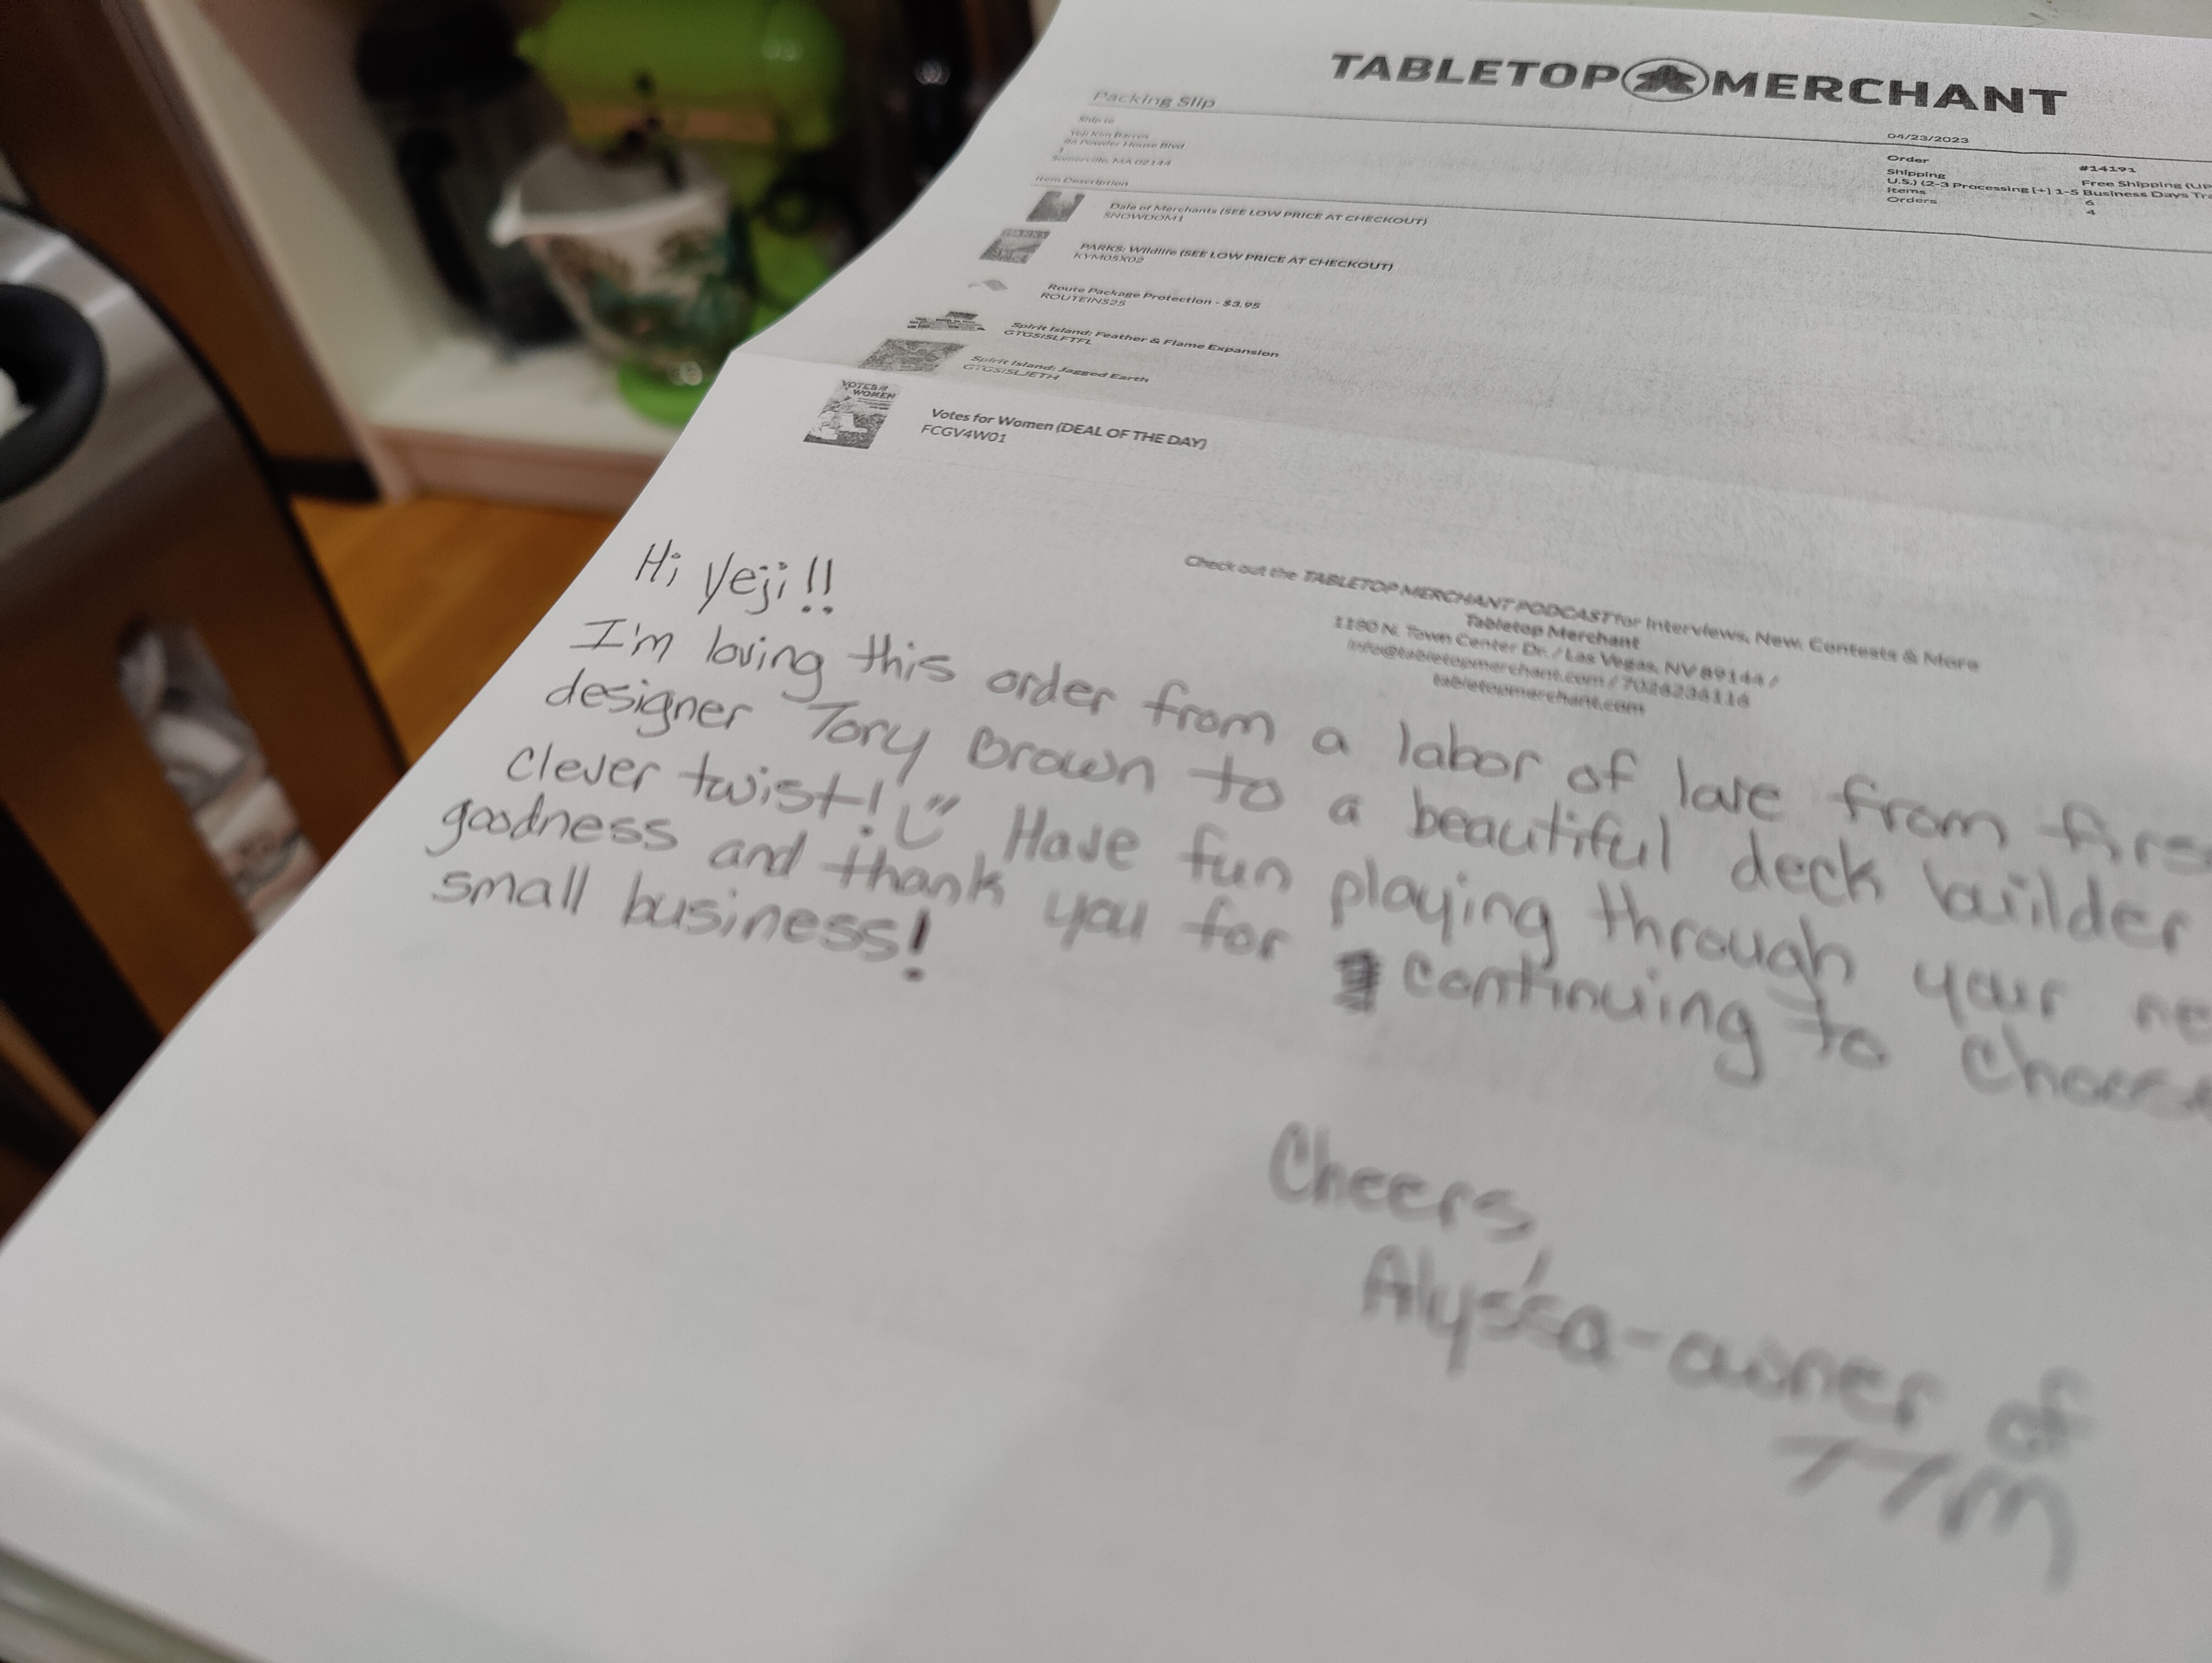 TABLETOP MERCHANT
Packing Slip
Ship to
Yeji Kim Barros
Powder House Blvd
1
Somerville, MA 02144
04/23/2023
Order #14191
Shipping Free Shipping (UP
U.S.) (2-3 Processing [+] 1-5 Business Days Tra
Items 6
Orders 4
Item Description
Dale of Merchants (SEE LOW PRICE AT CHECKOUT)
SNOWDOM1
PARKS: Wildlife (SEE LOW PRICE AT CHECKOUT)
KYM05X02
Route Package Protection - $3.95
ROUTEINS25
Spirit Island: Feather & Flame Expansion
GTGSISLFTFL
Spirit Island: Jagged Earth
GTGSISLJETH
VOTES for
WOMEN
Votes for Women (DEAL OF THE DAY)
FCGV4W01
Check out the TABLETOP MERCHANT PODCAST for Interviews, New, Contests & More
Tabletop Merchant
1180 N. Town Center Dr. / Las Vegas, NV 89144 /
info@tabletopmerchant.com / 7028236116
tabletopmerchant.com
Hi Yeji!!
I'm loving this order from a labor of love from firs
designer Tory Brown to a beautiful deck builder
clever twist! Have fun playing through your ne
goodness and thank you for continuing to choose
small business!
Cheers,
Alyssa - owner of
TTM